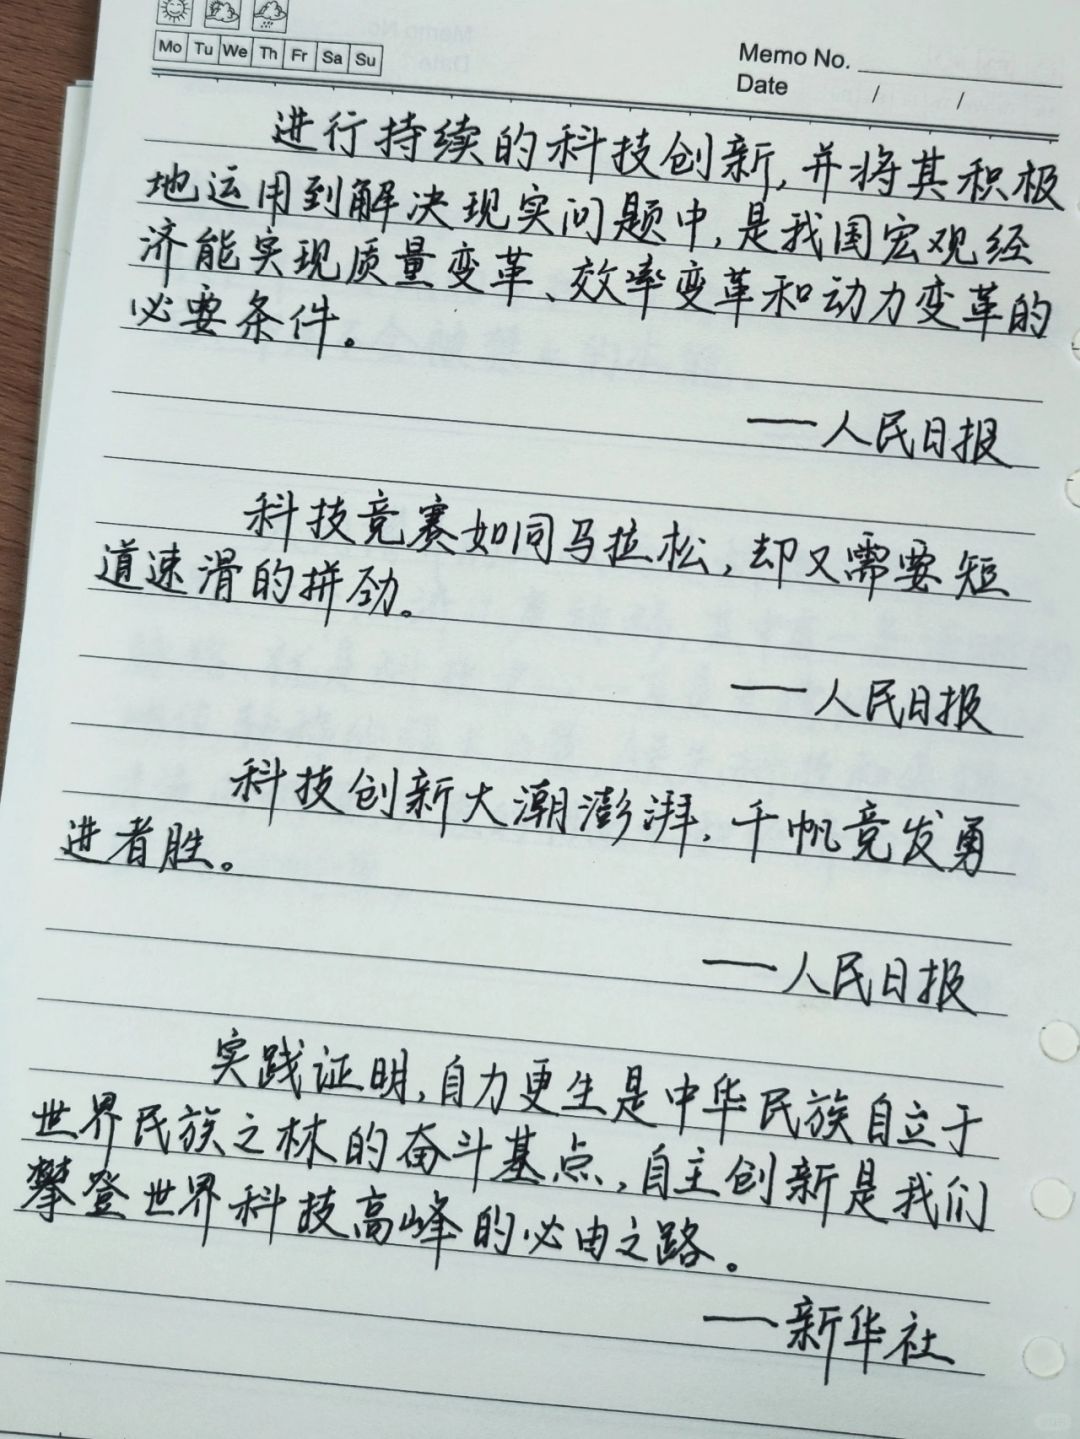 Mo Tu We Th Fr Sa Su
Memo No.
Date / /
进行持续的科技创新,并将其积极
地运用到解决现实问题中,是我国宏观经
济能实现质量变革、效率变革和动力变革的
必要条件。
——人民日报
科技竞赛如同马拉松,却又需要短
道速滑的拼劲。
——人民日报
科技创新大潮澎湃,千帆竞发勇
进者胜。
——人民日报
实践证明,自力更生是中华民族自立于
世界民族之林的奋斗基点,自主创新是我们
攀登世界科技高峰的必由之路。
——新华社